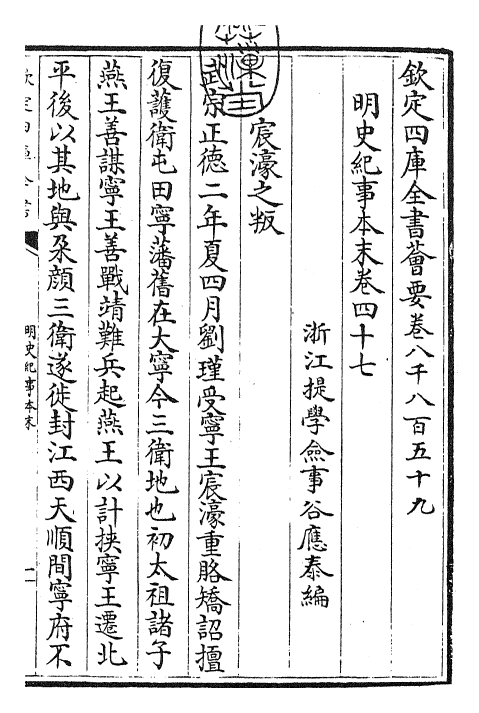 欽定四庫全書薈要卷八千八百五十九
明史紀事本末卷四十七
浙江提學僉事谷應泰編
宸濠之叛
武宗正德二年夏四月劉瑾受寧王宸濠重賂矯詔擅
復護衛屯田寧藩舊在大寧今三衛地也初太祖諸子
燕王善謀寧王善戰靖難兵起燕王以計挾寧王遷北
平後以其地與朶顔三衛遂徙封江西天順間寧府不
欽定四庫全書
明史紀事本末
一